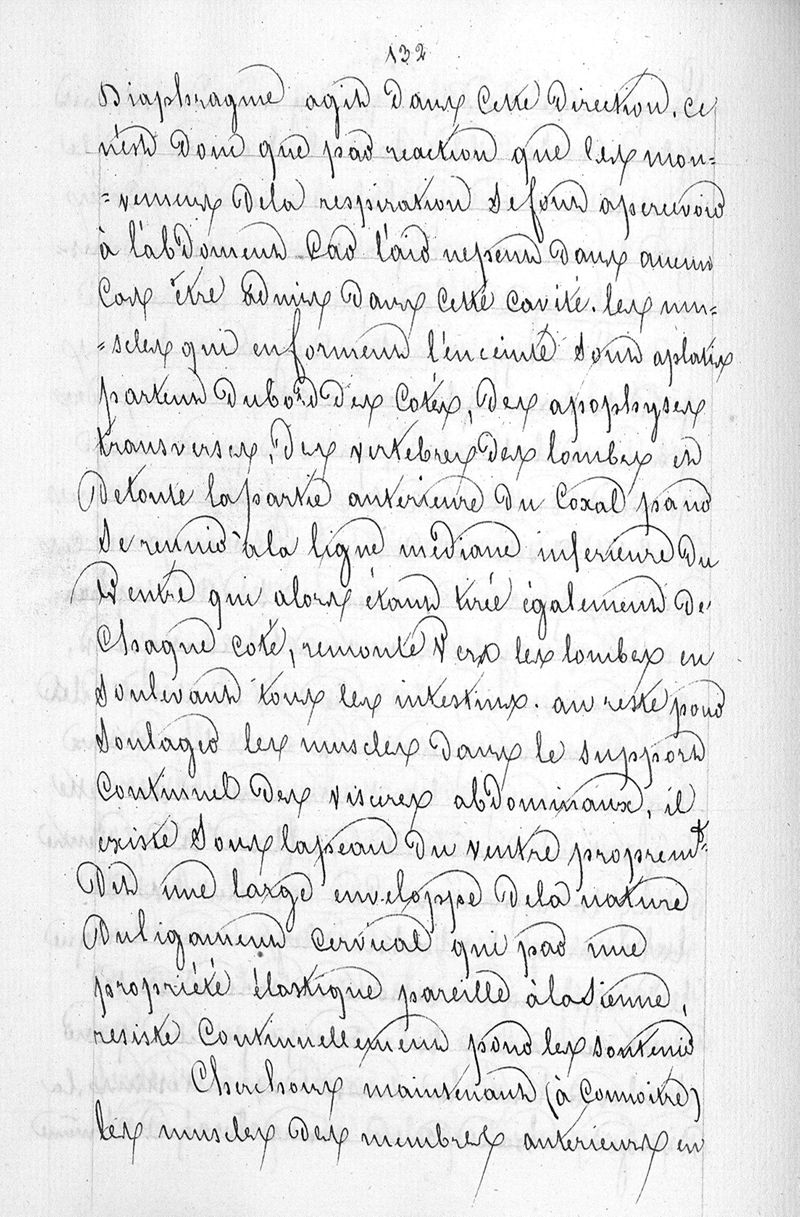 132
Diaphragme agit dans cette direction. ce
n'est donc que par reaction que les mou=
=vemens dela respiration se font apercevoir
à l'abdomen Car l'air nepeut dans aucun
Cas être admis dans cette cavité. les mu=
=scles qui enforment l'enceinte sont aplatis
partent dubord des Cotés, des apophyses
transverses, des vertebres des lombes et
Detoute lapartie anterieure du Coxal pour
se reunir à la ligne médiane inferieure du
Ventre qui alors étant tirée également de
Chaque coté, remonte Vers les lombes en
Soulevant tous les intestins. au reste pour
Soulager les muscles dans le support
Continuel des visceres abdominaux, il
existe Sous lapeau du ventre proprem.t
Dit une large enveloppe dela nature
Duligament cervical qui par une
propriété élastique pareille àlasienne,
resiste Continuellement pour les soutenir
Cherchons maintenant (à Connoitre)
les muscles des membres anterieurs en